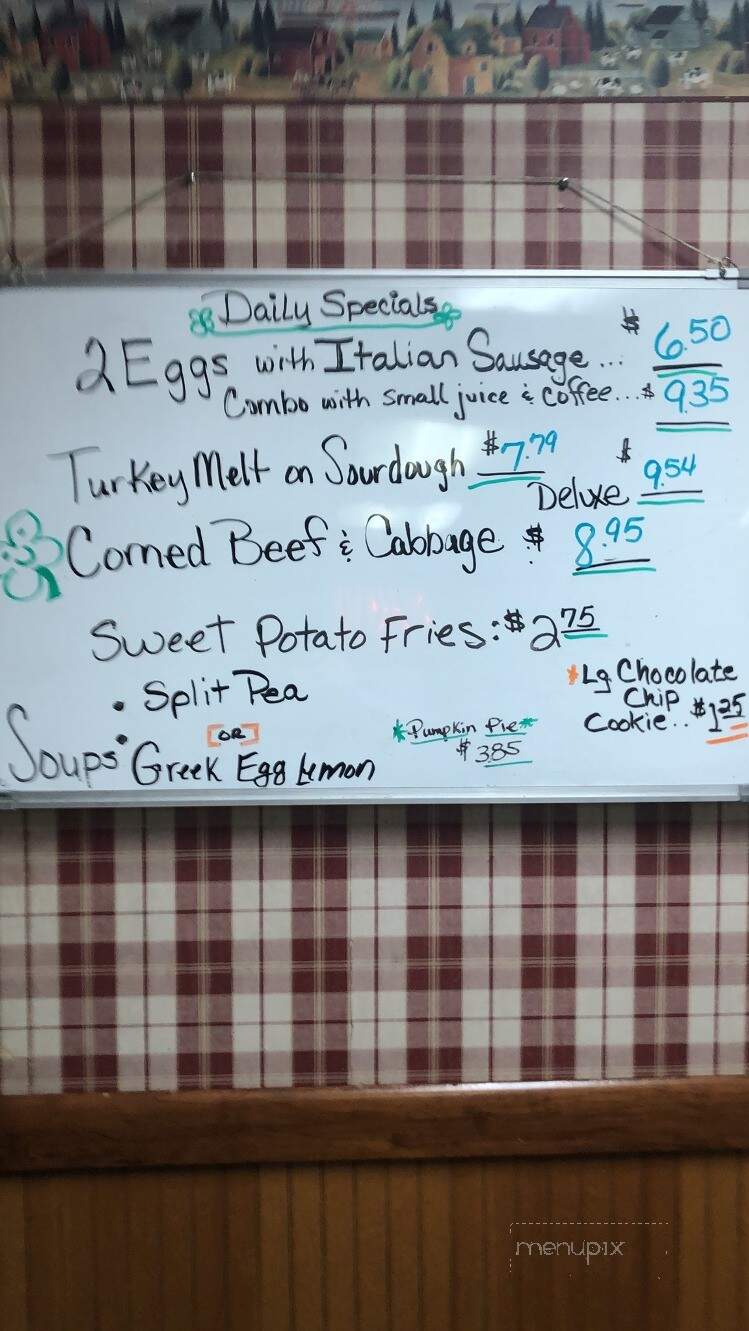 Daily Specials
2 Eggs with Italian Sausage... $ 6.50
Combo with small juice & coffee...$ 9.35
Turkey Melt on Sourdough $7.79
Deluxe $ 9.54
Corned Beef & Cabbage $ 8.95
Sweet Potato Fries: $2.75
Soups
• Split Pea
[OR]
• Greek Egg Lemon
*Pumpkin Pie*
$ 3.85
*Lg Chocolate
Chip
Cookie.. $1.25
menupix